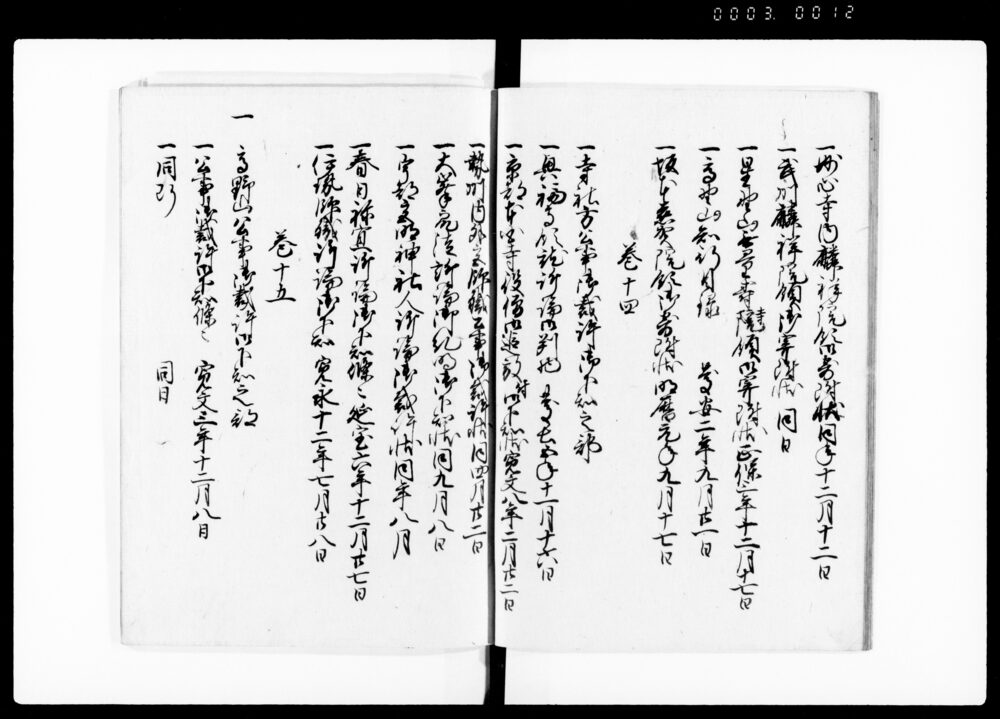 0003. 0012
一妙心寺内麟祥院領御寄附状同年十二月十二日
一武州麟祥院領御寄附状 同日
一星野山無量寿院領御寄附状正保三年十二月十七日
一高野山知行目録 慶安二年九月廿一日
一坂本 院領御寄附状明暦元年九月十七日
巻十四
一寺社方公事御裁許御下知之部
一興福寺 訴論御判物 年十一月十六日
一京都本国寺役僧御追放ニ付御下知状寛文八年二月廿二日
一勢州内外宮師職公事御裁許状同四月廿二日
一大峯 訴論御糺明御下知状同九月八日
一宇都宮明神社人訴論御裁許状同年八月
一春日祢宜訴論御下知條々延宝六年十二月廿七日
一住職 訴論御下知 寛永十二年七月廿八日
巻十五
一 高野山公事御裁許御下知之部
一公事御裁許御下知條々 寛文三年十二月八日
一同断 同日